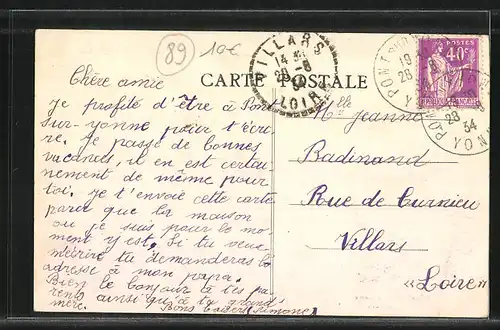 89
10€
VILLARS
14
28 - 8
34
LOIRE
CARTE POSTALE
POSTES
40c
PONT-SUR-YONNE
28 - 8
34
YONNE
Chère amie
je profite d'être à Pont
sur-yonne pour t'écri
re. Je passe de bonnes
vacances, il en est certai
nement de même pour
toi. Je t'envoie cette carte
parce que la maison
ou je suis pour le mo
ment y est. Si tu veux
m'écrire tu demanderas l'
adresse à mon papa.
Bien le bonjour à tes pa
rents ainsi qu'à ta grand'
mère. Bons baisers (Simone)
Mlle Jeanne
Badinand
Rue de Curnieu
Villars
«Loire»